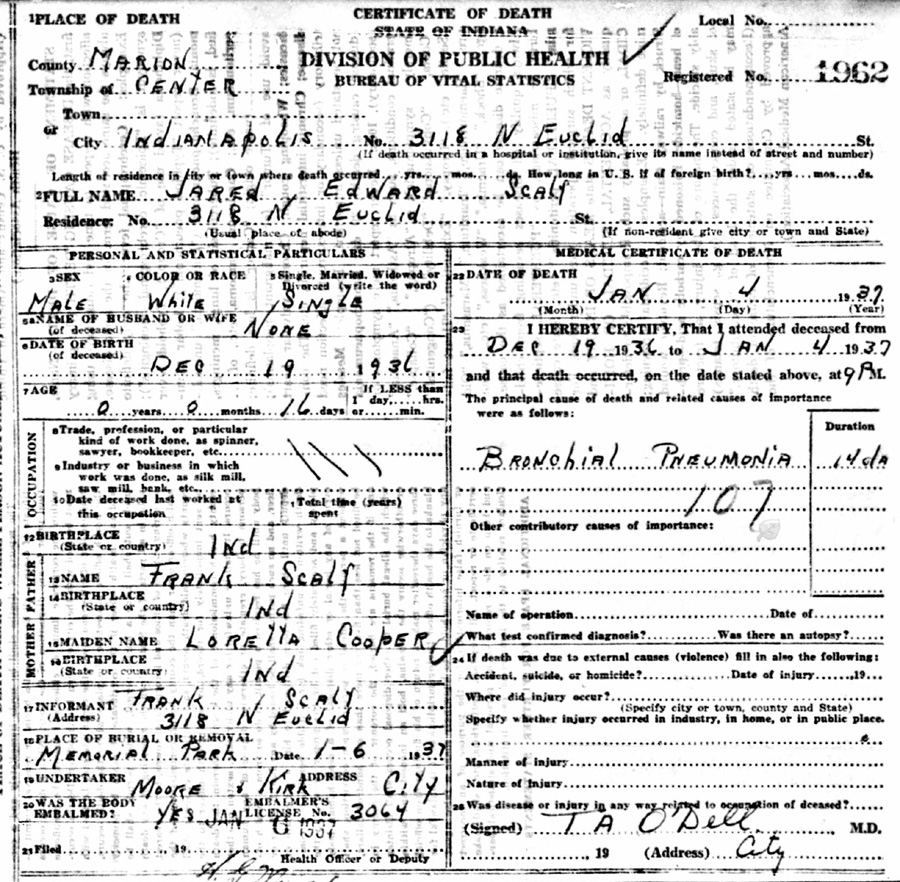 1 PLACE OF DEATH
CERTIFICATE OF DEATH
STATE OF INDIANA
Local No.
County MARION
DIVISION OF PUBLIC HEALTH
Township of CENTER
BUREAU OF VITAL STATISTICS
Registered No. 1962
Town
or
City INDIANAPOLIS No. 3118 N EUCLID St.
(If death occurred in a hospital or institution, give its name instead of street and number)
Length of residence in city or town where death occurred yrs. mos. ds. How long in U. S. if of foreign birth? yrs. mos. ds.
2 FULL NAME JARED EDWARD SCALF
Residence: No. 3118 N EUCLID St.
(Usual place of abode) (If non-resident give city or town and State)
PERSONAL AND STATISTICAL PARTICULARS
3 SEX 4 COLOR OR RACE 5 Single, Married, Widowed or
Divorced (write the word)
MALE WHITE SINGLE
5a NAME OF HUSBAND OR WIFE
(of deceased) NONE
6 DATE OF BIRTH
(of deceased)
DEC 19 1936
7 AGE If LESS than
1 day, hrs.
0 years 0 months 16 days or min.
OCCUPATION
8 Trade, profession, or particular
kind of work done, as spinner,
sawyer, bookkeeper, etc.
9 Industry or business in which
work was done, as silk mill,
saw mill, bank, etc.
10 Date deceased last worked at
this occupation
Total time (years)
spent
12 BIRTHPLACE
(State or country) IND
FATHER
13 NAME FRANK SCALF
14 BIRTHPLACE
(State or country) IND
MOTHER
15 MAIDEN NAME LORETTA COOPER
16 BIRTHPLACE
(State or country) IND
17 INFORMANT FRANK SCALF
(Address) 3118 N EUCLID
18 PLACE OF BURIAL OR REMOVAL
MEMORIAL PARK Date 1-6 1937
19 UNDERTAKER ADDRESS
MOORE & KIRK CITY
20 WAS THE BODY
EMBALMED? YES
EMBALMER'S
LICENSE No. 3064
JAN 6 1937
21 Filed 19
Health Officer or Deputy
MEDICAL CERTIFICATE OF DEATH
22 DATE OF DEATH
JAN 4 1937
(Month) (Day) (Year)
23 I HEREBY CERTIFY, That I attended deceased from
DEC 19 1936 to JAN 4 1937
and that death occurred, on the date stated above, at 9 P M.
The principal cause of death and related causes of importance
were as follows:
Duration
BRONCHIAL PNEUMONIA 14 da
107
Other contributory causes of importance:
Name of operation Date of
What test confirmed diagnosis? Was there an autopsy?
24 If death was due to external causes (violence) fill in also the following:
Accident, suicide, or homicide? Date of injury 19
Where did injury occur?
(Specify city or town, county and State)
Specify whether injury occurred in industry, in home, or in public place.
Manner of injury
Nature of injury
25 Was disease or injury in any way related to occupation of deceased?
(Signed) T A O'DELL M.D.
19 (Address) City